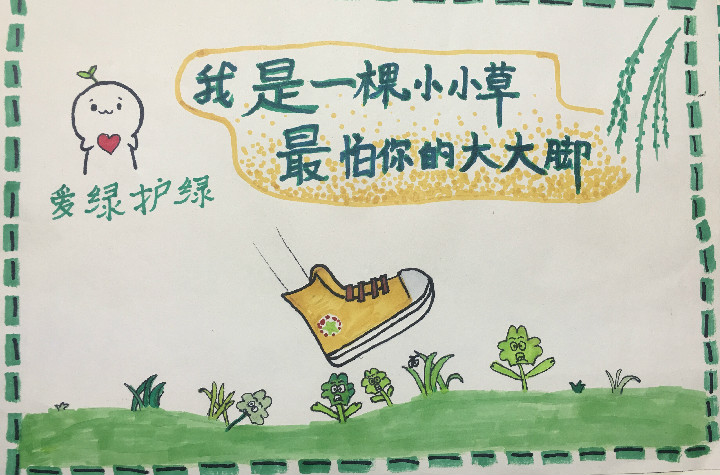 我是一棵小小草
最怕你的大大脚
爱绿护绿